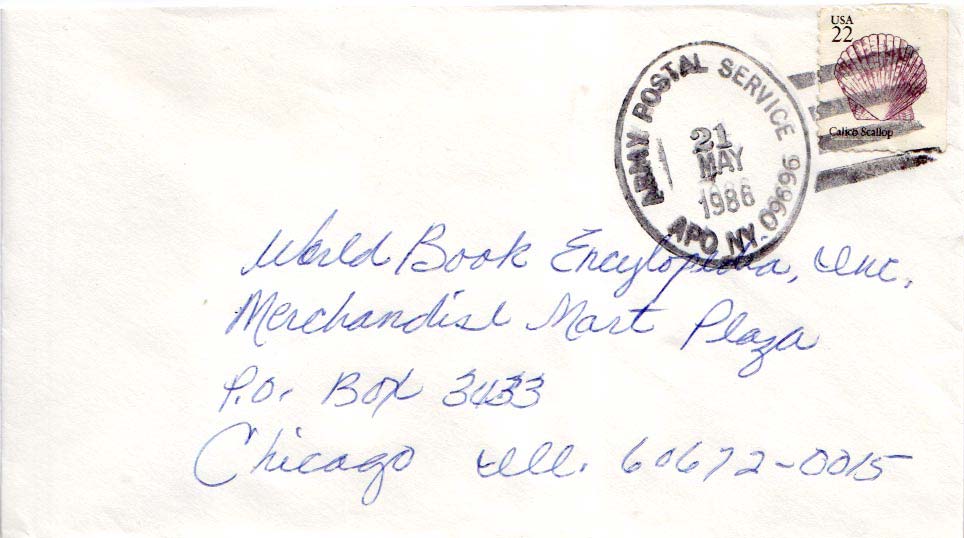 USA
22
Calico Scallop
ARMY POSTAL SERVICE
21
MAY
1986
APO NY. 09696
World Book Encylopedia, Inc.
Merchandise Mart Plaza
P.O. Box 3433
Chicago Ill. 60672-0015